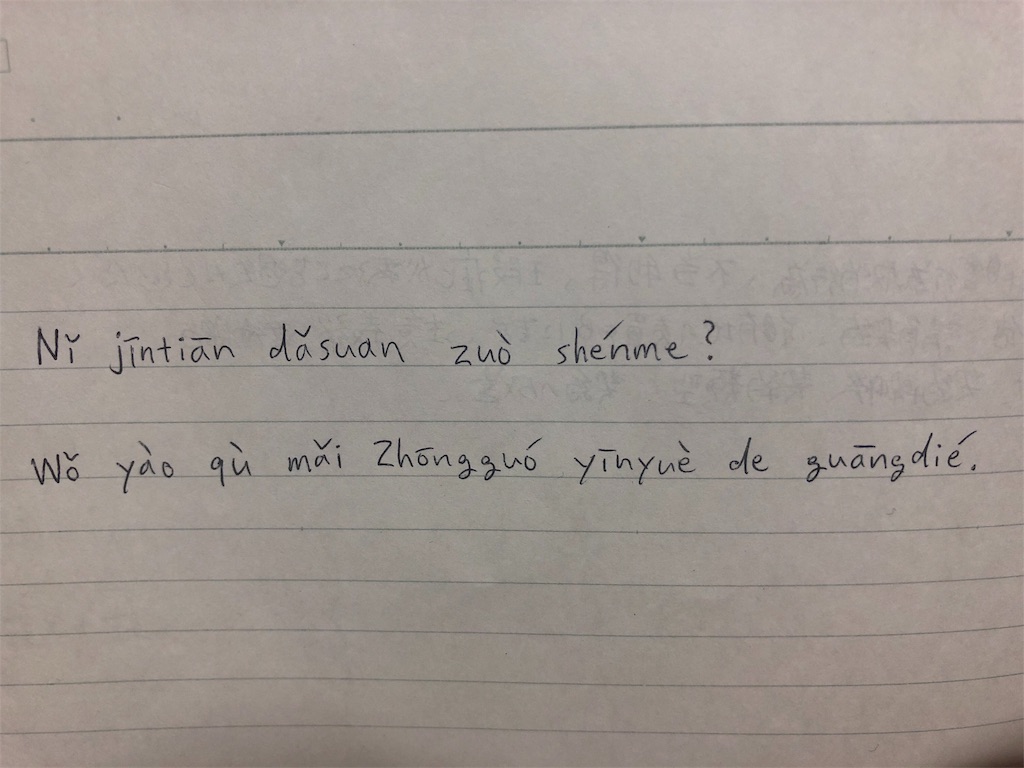 Nǐ jīntiān dǎsuan zuò shénme?
Wǒ yào qù mǎi Zhōngguó yīnyuè de guāngdié.